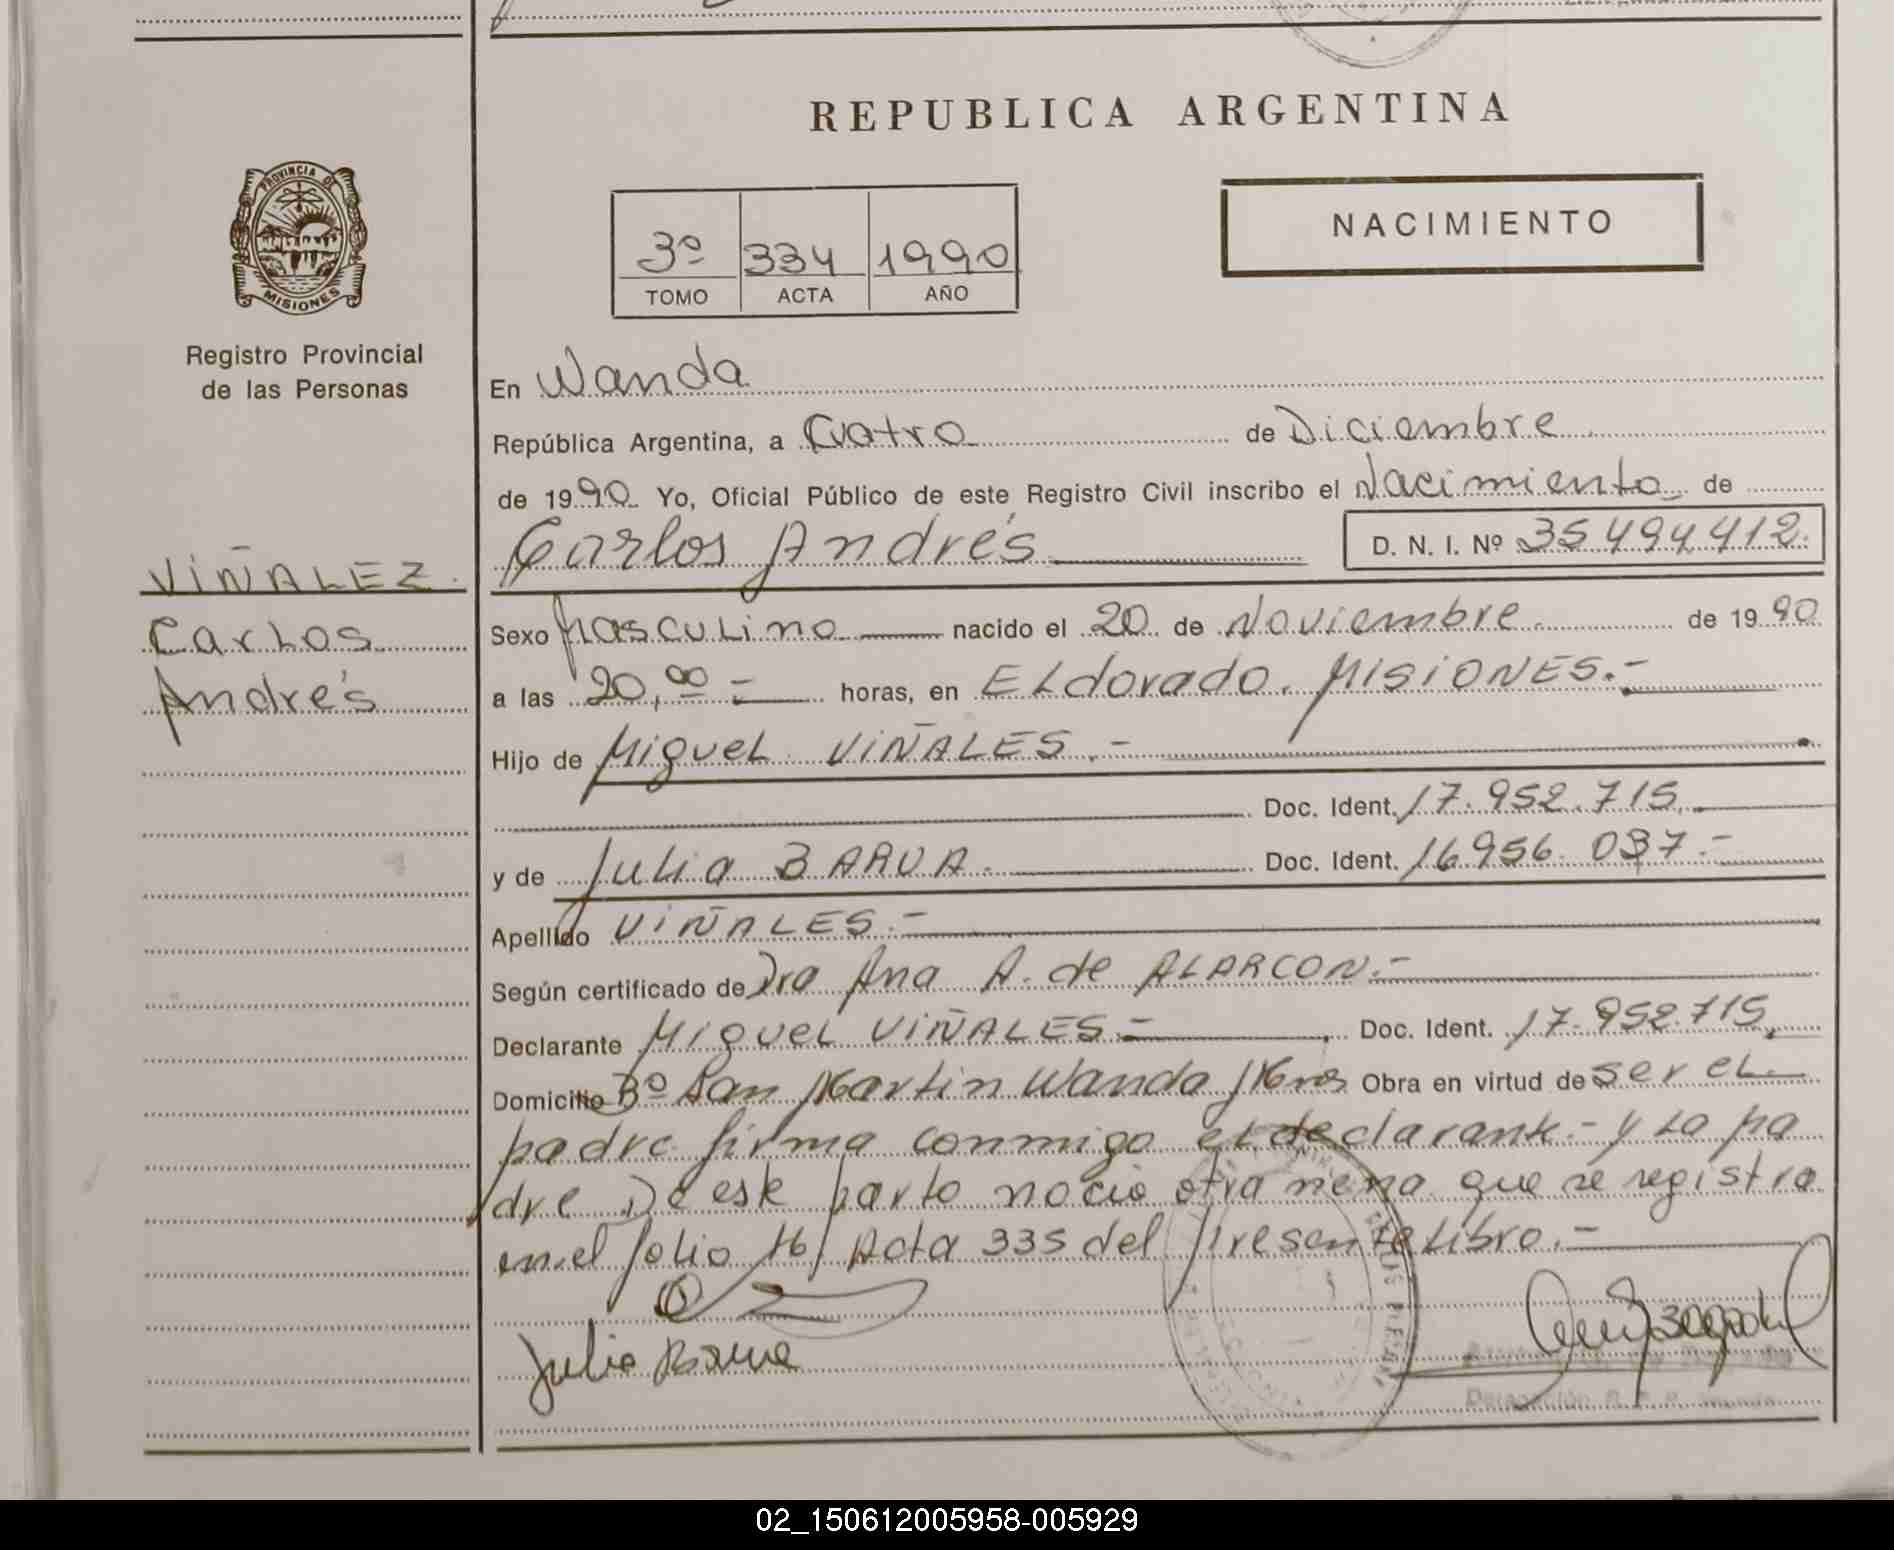 REPUBLICA ARGENTINA
PROVINCIA DE
MISIONES
Registro Provincial
de las Personas
3º 334 1990
TOMO ACTA AÑO
NACIMIENTO
En Wanda
República Argentina, a Cuatro de Diciembre
de 1990 Yo, Oficial Público de este Registro Civil inscribo el Nacimiento de
Carlos Andrés D. N. I. Nº 35494412.
VIÑALEZ.
Carlos
Andrés
Sexo Masculino nacido el 20 de Noviembre de 1990
a las 20,00 - horas, en ELdorado. MISIONES.-
Hijo de MigueL VIÑALES.-
Doc. Ident. 17.952.715.
y de Julia BARUA. Doc. Ident. 16956.037.-
Apellido VIÑALES.-
Según certificado de Dra Ana A. de ALARCON.-
Declarante MIGUEL VIÑALES.- Doc. Ident. 17.952.715.
Domicilio Bº San Martin Wanda Mnes Obra en virtud de ser el
padre firma conmigo el declarante.- y La pa
dre De este parto nacio otra nena que se registra
en el folio 16/ Acta 335 del presente Libro.-
Julia Barua
Delegación R. P. P. Wanda
02_150612005958-005929